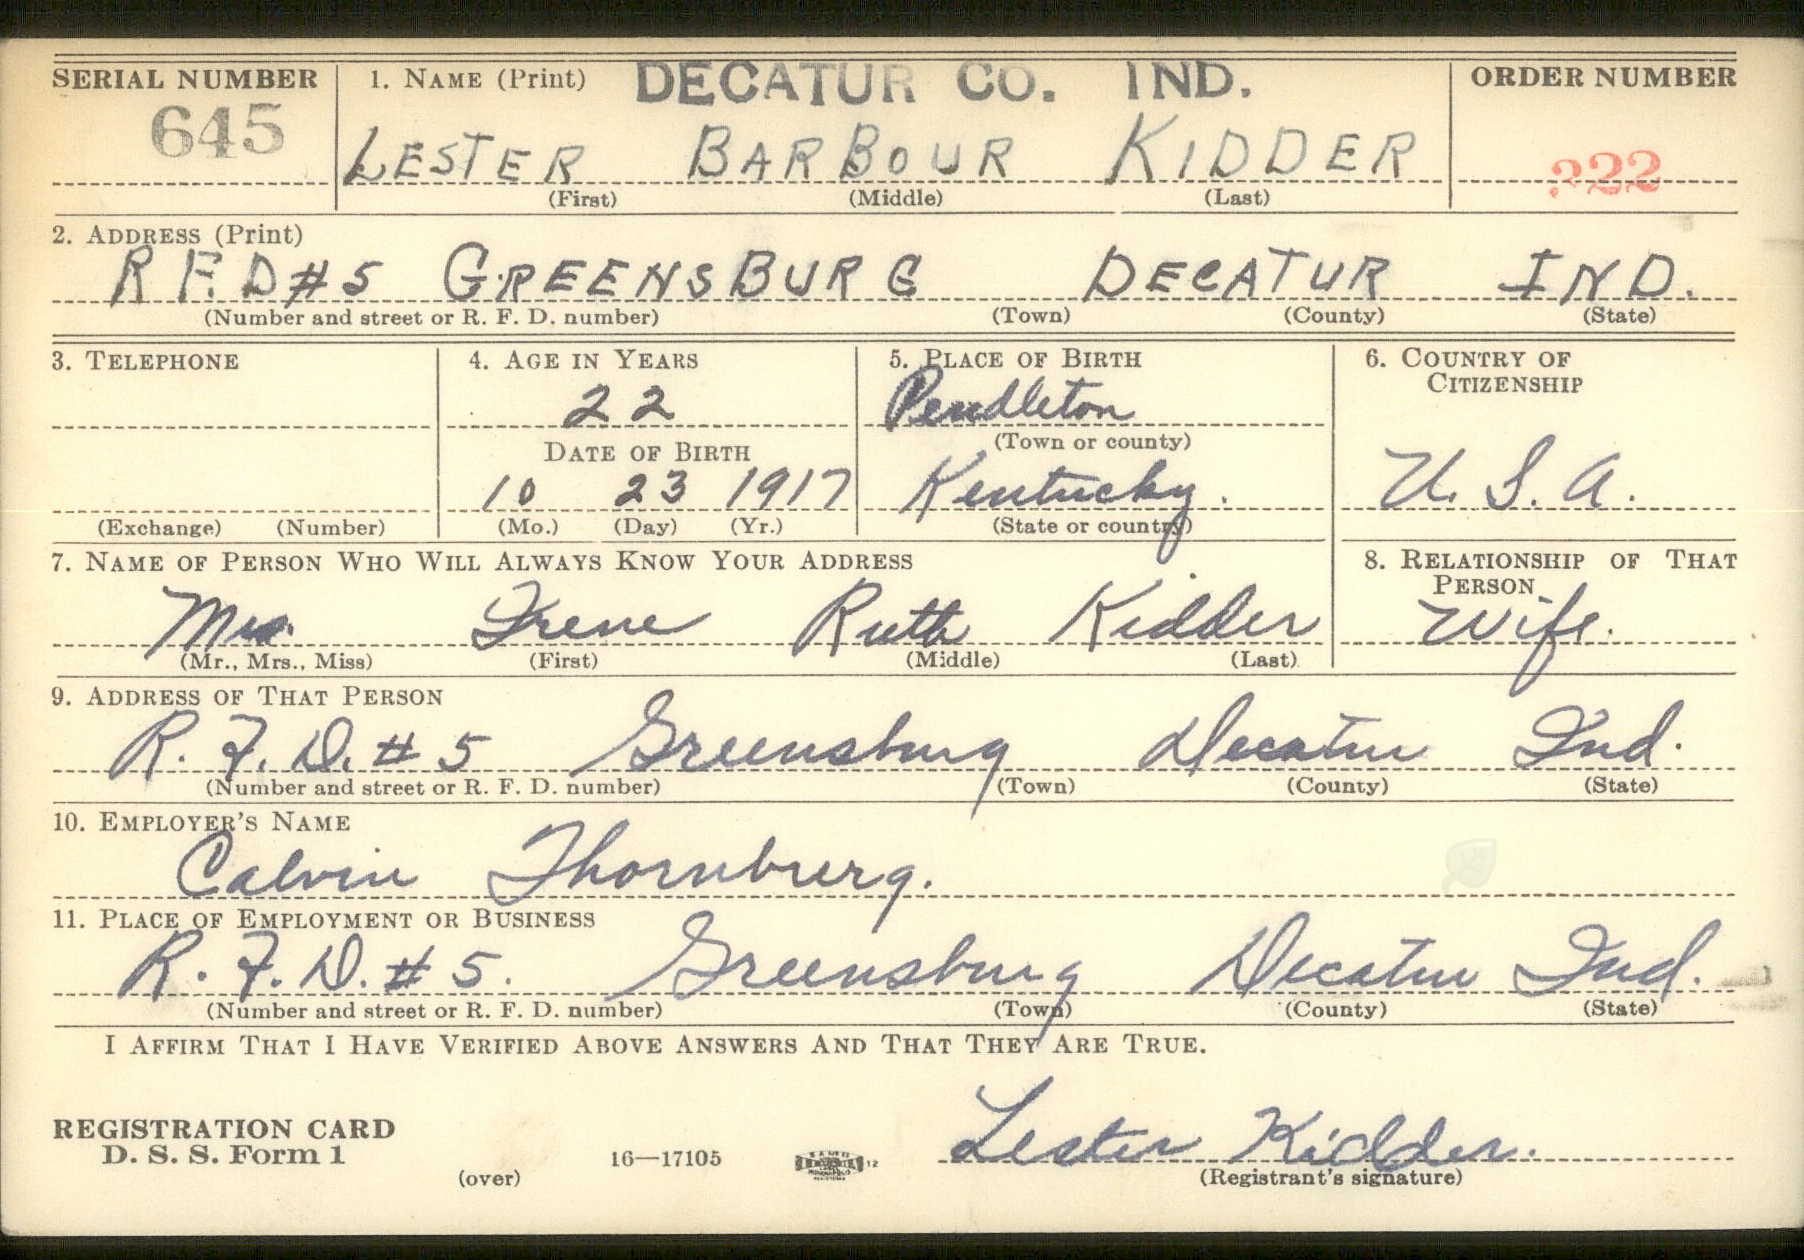 SERIAL NUMBER 1. NAME (Print) DECATUR CO. IND. ORDER NUMBER
645 LESTER BARBOUR KIDDER 322
(First) (Middle) (Last)
2. ADDRESS (Print)
R F.D #5 GREENSBURG DECATUR IND.
(Number and street or R. F. D. number) (Town) (County) (State)
3. TELEPHONE 4. AGE IN YEARS 5. PLACE OF BIRTH 6. COUNTRY OF CITIZENSHIP
22 Pendleton
DATE OF BIRTH (Town or county)
10 23 1917 Kentucky. U. S. A.
(Exchange) (Number) (Mo.) (Day) (Yr.) (State or country)
7. NAME OF PERSON WHO WILL ALWAYS KNOW YOUR ADDRESS 8. RELATIONSHIP OF THAT PERSON
Mrs. Irene Ruth Kidder Wife.
(Mr., Mrs., Miss) (First) (Middle) (Last)
9. ADDRESS OF THAT PERSON
R. F. D. #5 Greensburg Decatur Ind.
(Number and street or R. F. D. number) (Town) (County) (State)
10. EMPLOYER'S NAME
Calvin Thornburg.
11. PLACE OF EMPLOYMENT OR BUSINESS
R. F. D. #5. Greensburg Decatur Ind.
(Number and street or R. F. D. number) (Town) (County) (State)
I AFFIRM THAT I HAVE VERIFIED ABOVE ANSWERS AND THAT THEY ARE TRUE.
REGISTRATION CARD
D. S. S. Form 1 Lester Kidder.
(over) 16—17105 12 (Registrant's signature)